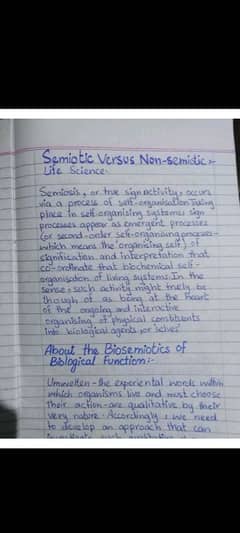 Semiotic Versus Non-semiotic :-
Life Science.
Semiosis, or true sign activity, occurs
via a process of self-organisation Taking
place in self-organising systems sign
processes appear as emergent processes
(or second-order self-organising processes-
which means the organising self) of
signification and interpretation that
co-ordinate that biochemical self-
organisation of living systems. In the
sense, such activity might truely be
though of as being at the heart
of the ongoing and interactive
organising of physical constraints
into biological agents or 'selves'
About the Biosemiotics of
Biological Function:-
Umwelten - the experiental words within
which organisms live and must choose
their action - are qualitative by their
very nature. Accordingly, we need
to develop an approach that can